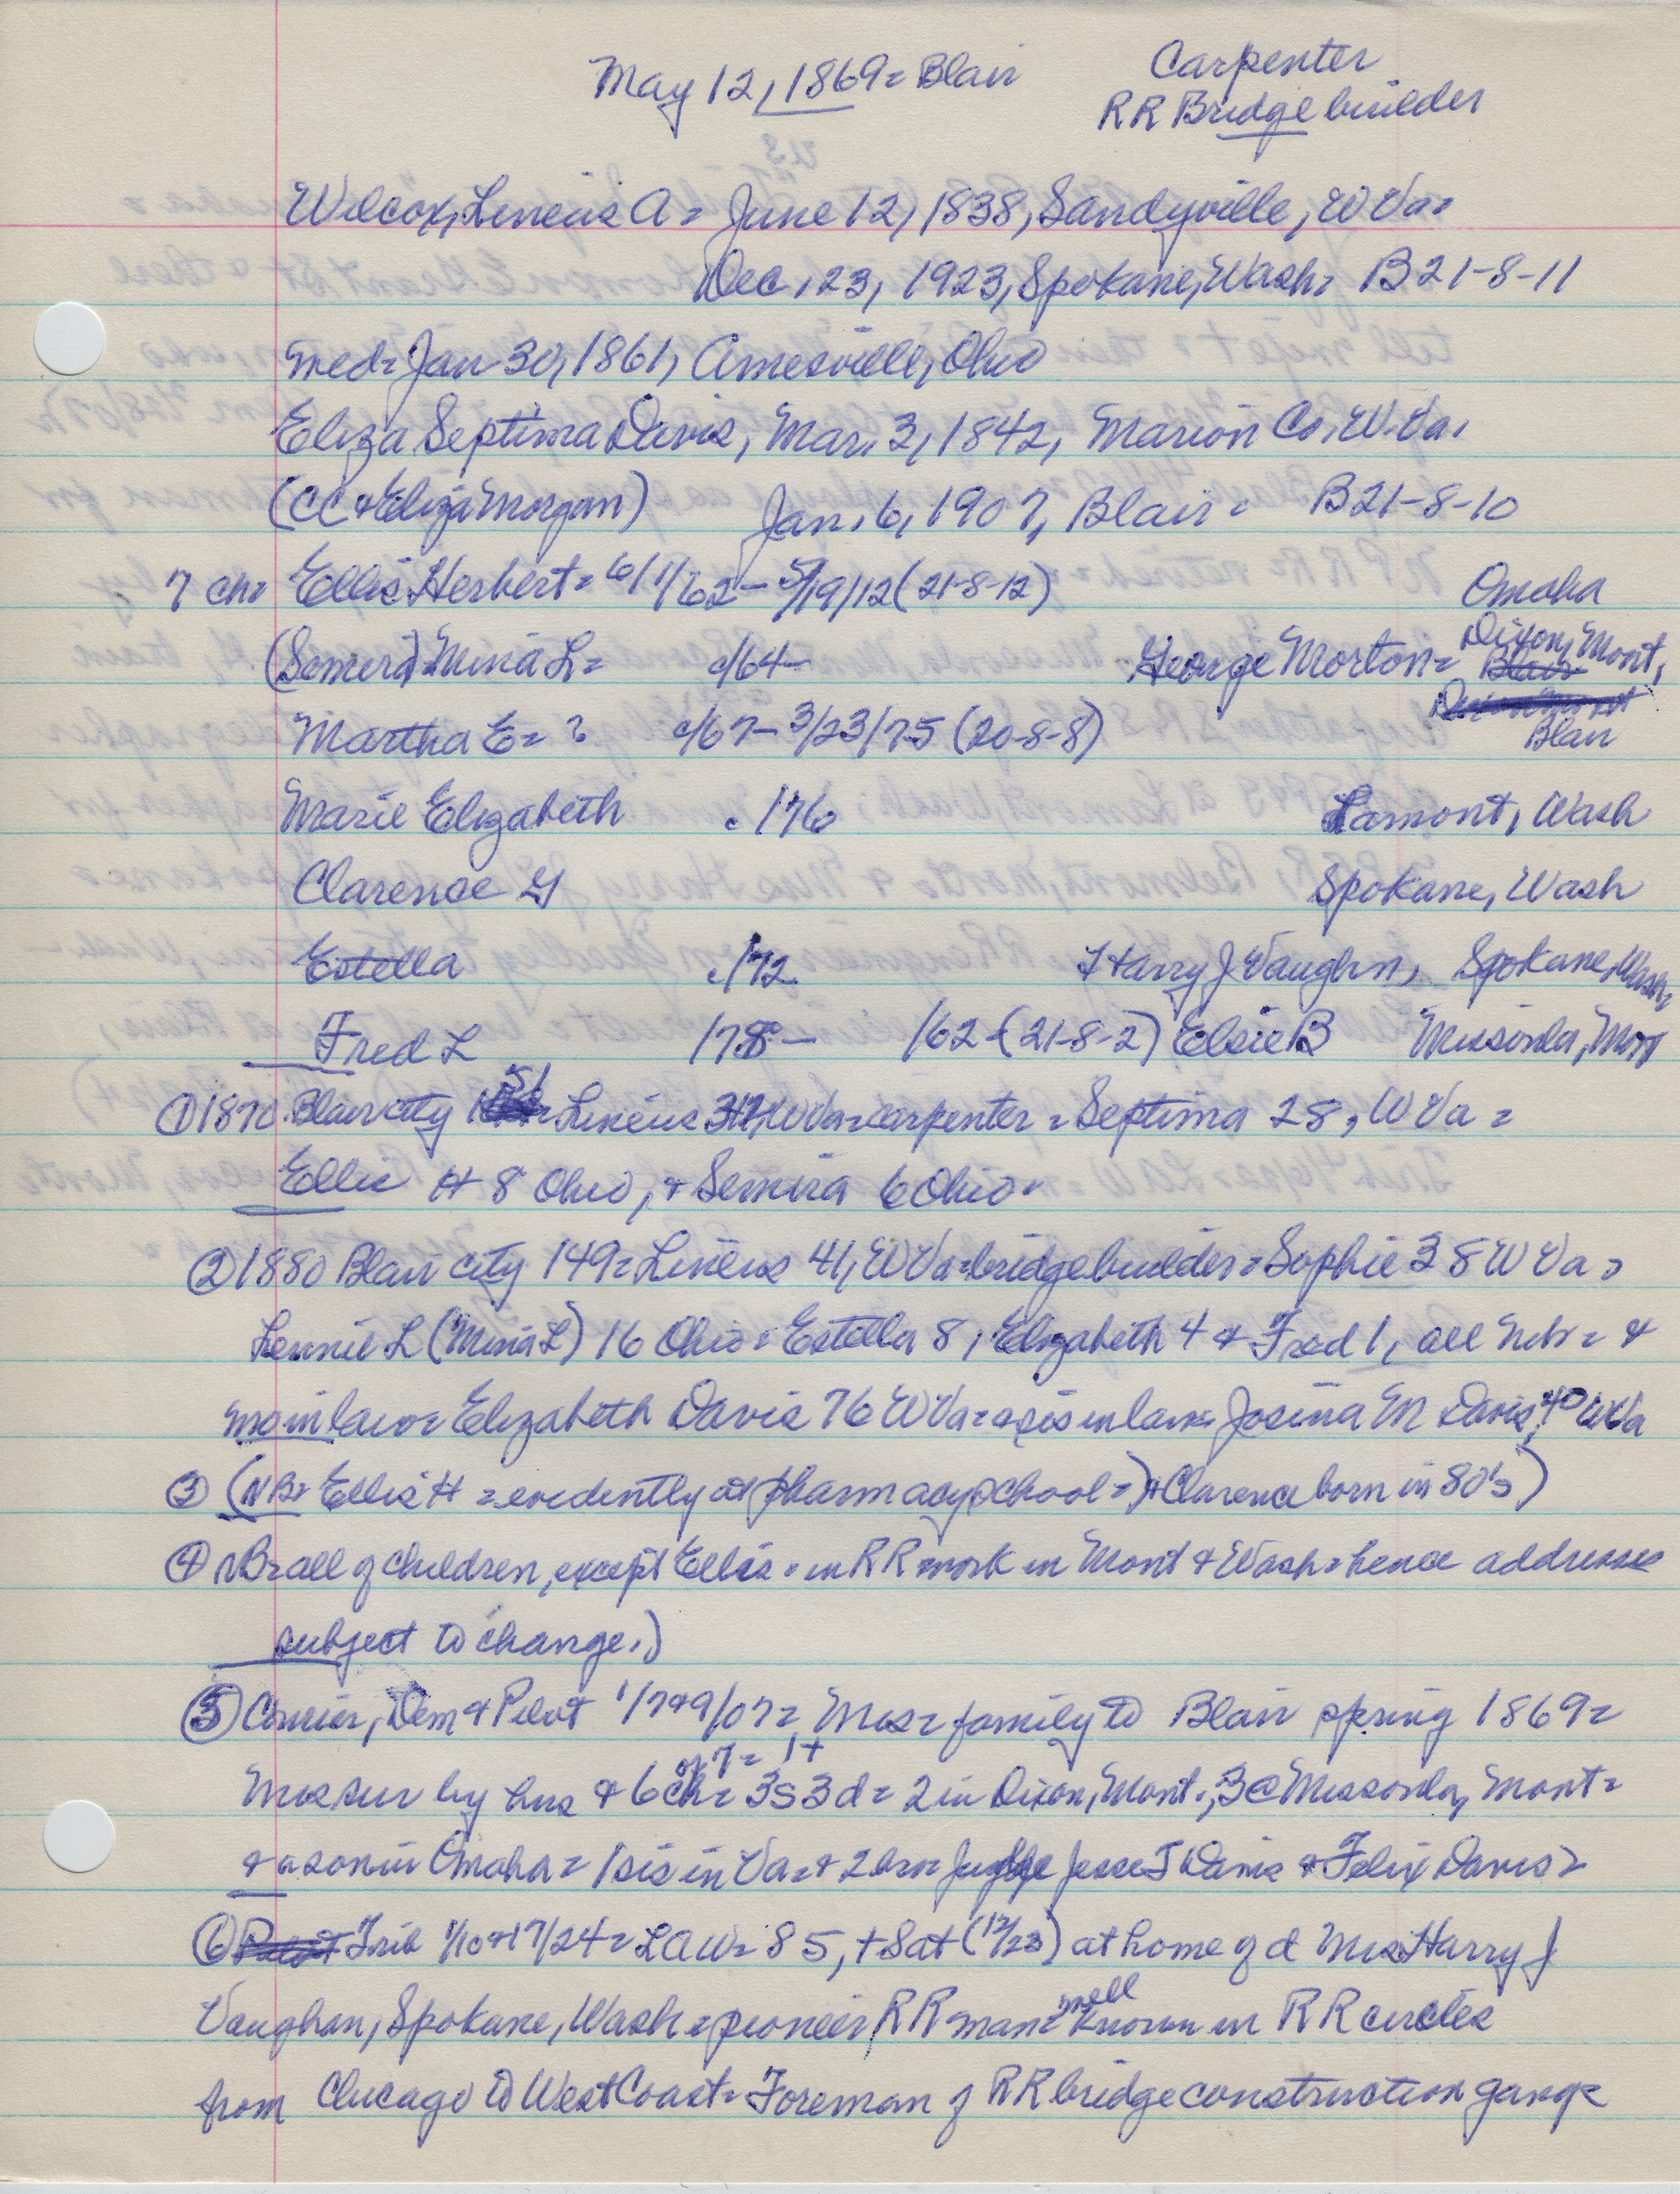 May 12, 1869= Blair
Carpenter
RR Bridge builder
Wilcox, Lineius A= June 12, 1838, Sandyville, W Va=
Dec. 23, 1923, Spokane, Wash= B21-8-11
med= Jan 30, 1861, Amesville, Ohio
Eliza Septima Davis, Mar. 3, 1842, Marion Co. W. Va.
(CC & Eliza Morgan) Jan. 6, 1907, Blair= B21-8-10
7 ch= Ellis Herbert= 6/1/62- 5/19/12 (21-8-12) Omaha
(Semira) Mina L= c/64- George Morton= Dixon, Mont,
Blair
Martha E= ? c/67- 3/23/75 (20-8-8) Blair
Marie Elizabeth c/76 Lamont, Wash
Clarence G Spokane, Wash
Estella c/72 Harry J Vaughn, Spokane, Wash=
Fred L /78- /62-(21-8-2) Elsie B Missoula, Mont
① 1870 Blair city 51 Lineius W Va=carpenter= Septima 28, W Va=
Ellis H 8 Ohio, & Semira 6 Ohio=
② 1880 Blair city 149= Lineus 41, W Va=bridge builder= Sophie 38 W Va=
Lennie L (Mina L) 16 Ohio= Estella 8, Elizabeth 4 & Fred 1, all Nebr= &
mo in law= Elizabeth Davis 76 W Va= & sis in law= Josina M Davis, 40 W Va
③ (NB= Ellis H =evidently at pharmacy school=) & Clarence born in 80's)
④ NB= all of children, except Ellis= in RR work in Mont & Wash= hence addresses
subject to change.)
⑤ Courier, Dem & Pilot 1/7&9/07= Mrs= family to Blair spring 1869=
of 7= 1+
Mrs sur by hus & 6 ch= 3s 3d= 2 in Dixon, Mont., 3 @ Missoula, Mont=
& a son in Omaha= 1 sis in Va= & 2 bro= Judge Jesse J Davis & Felix Davis=
⑥ Trib 1/10&17/24= LAW= 85, + Sat (12/23) at home of d Mrs Harry J
Vaughan, Spokane, Wash= pioneer RR man= well known in RR circles
from Chicago to West Coast= Foreman of RR bridge construction gangs